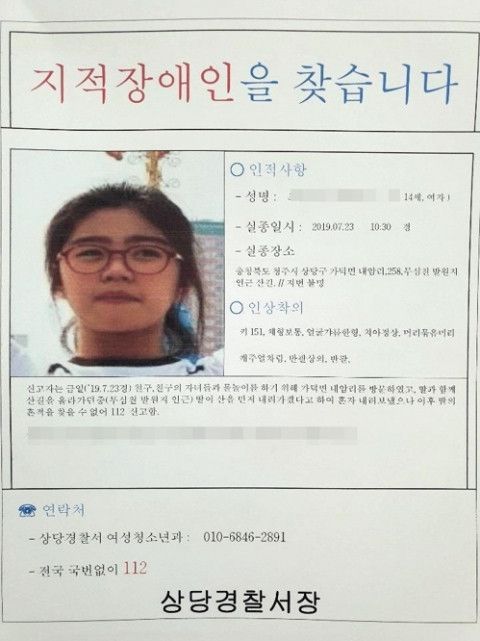 지적장애인을 찾습니다
○ 인적사항
- 성명 : 14세, 여자 )
- 실종일시 : 2019.07.23 10:30 경
- 실종장소
충청북도 청주시 상당구 가덕면 내암리,258,무심천 발원지
인근 산길, // 지번 불명
○ 인상착의
키 151, 체형보통, 얼굴갸름한형, 치아정상, 머리묶음머리
회색반팔상의, 반팔,
신고자는 금일('19.7.23경) 친구,친구의 자녀들과 물놀이를 하기 위해 가덕면 내암리를 방문하였고, 딸과 함께
산길을 올라가던중(무심천 발원지 인근) 딸이 산을 먼저 내려가겠다고 하여 혼자 내려보냈으나 이후 딸의
흔적을 찾을 수 없어 112 신고함.
☎ 연락처
- 상당경찰서 여성청소년과 : 010-6846-2891
- 전국 국번없이 112
상당경찰서장